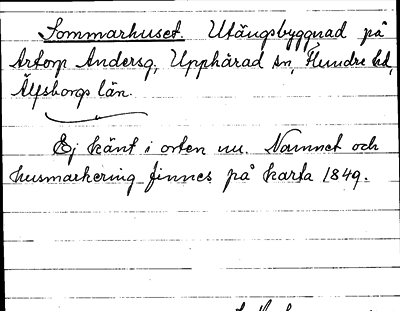 Sommarhuset. Utängsbyggnad på
Artorp Andersg, Upphärad sn, Flundre hd,
Älfsborgs län.
Ej känt i orten nu. Namnet och
husmarkering finnes på karta 1849.